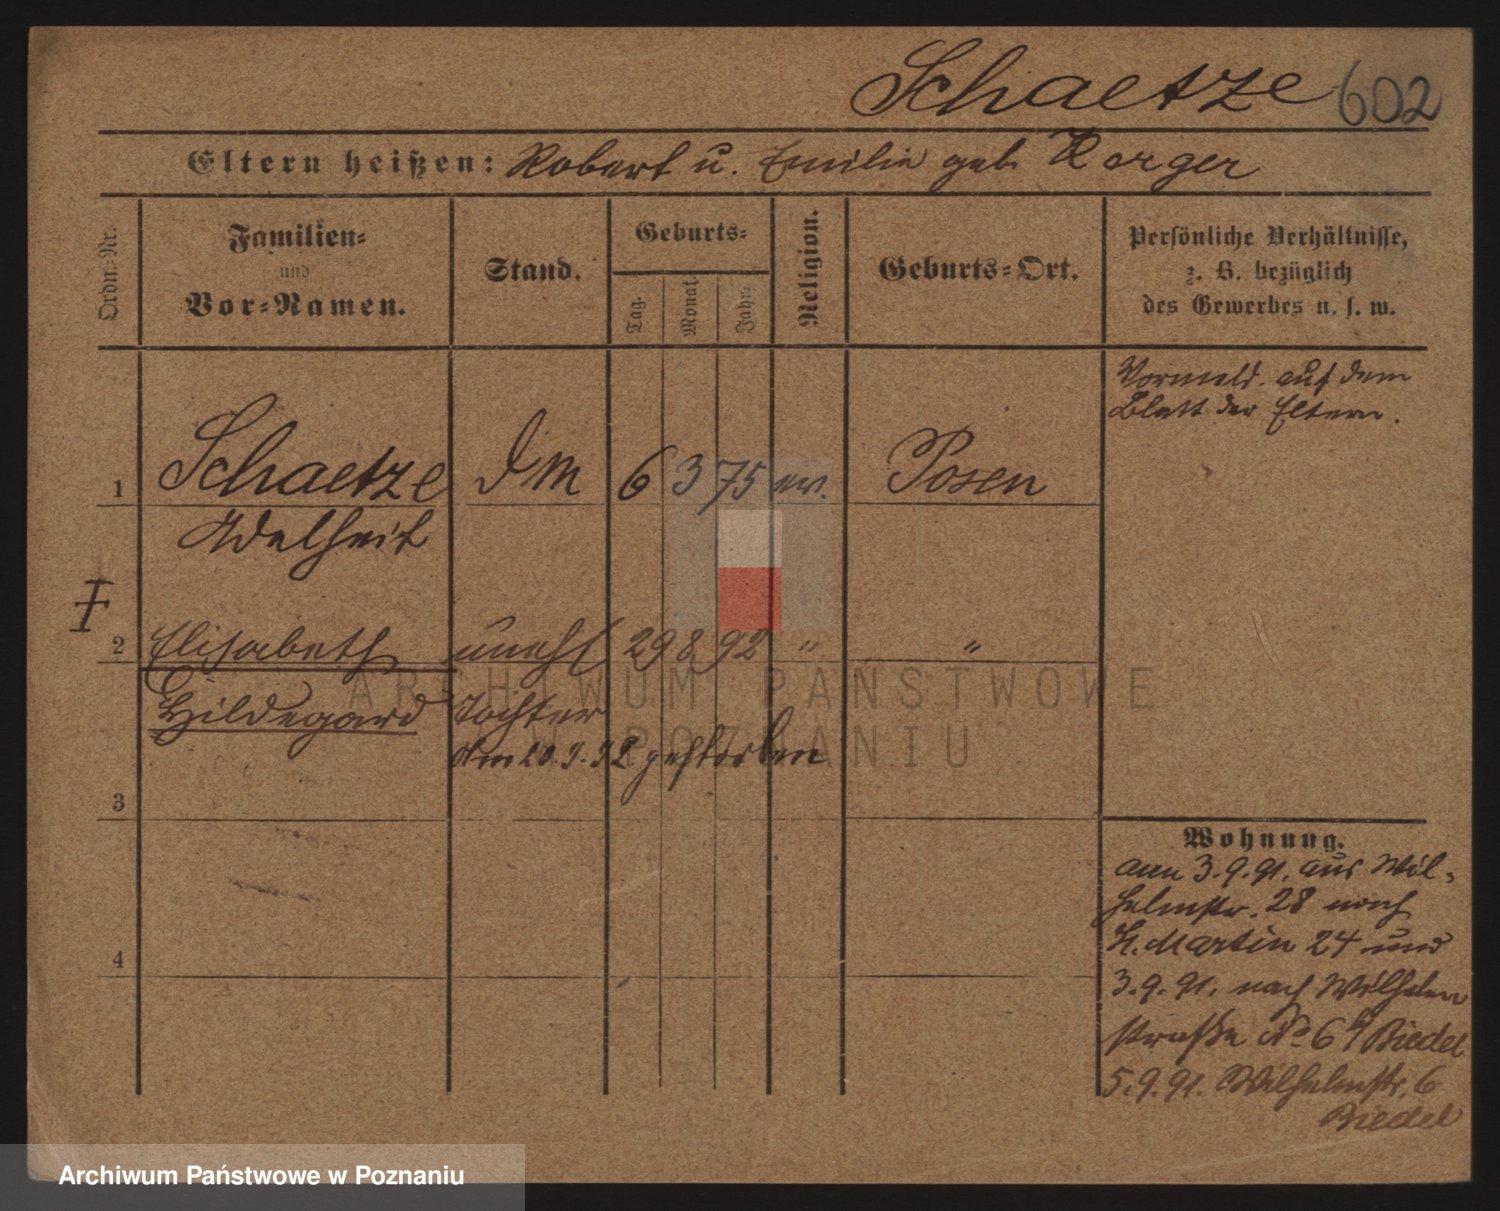 Schaetze 602
Eltern heißen: Robert u. Emilie geb. Korger
Ordn.-Nr.
Familien-
und
Vor-Namen.
Stand.
Geburts-
Tag.
Monat.
Jahr.
Religion.
Geburts-Ort.
Persönliche Verhältnisse,
z. B. bezüglich
des Gewerbes u. s. w.
Vormeld. auf dem
Blatt der Eltern.
1 Schaetze 6 3 75 ev. Posen
Adelheit
2 Elisabeth unehl 29 8 92 " "
Hildegard Tochter
am 20.9.92 gestorben
3
4
Wohnung.
am 3.9.91. aus Wil-
helmstr. 28 nach
St. Martin 24 und
3.9.91. nach Wilhelm
straße No 6 b/ Biedel
5.9.91. Wilhelmstr. 6
Biedel
ARCHIWUM PAŃSTWOWE
W POZNANIU
Archiwum Państwowe w Poznaniu